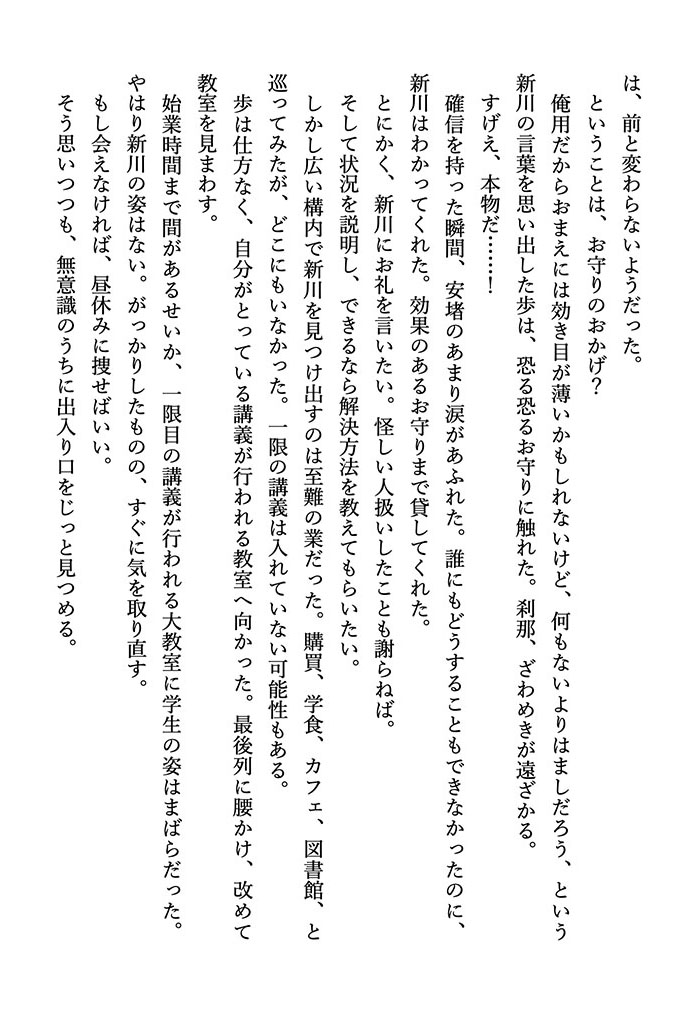 は、前と変わらないようだった。
ということは、お守りのおかげ？
俺用だからおまえには効き目が薄いかもしれないけど、何もないよりはましだろう、という
新川の言葉を思い出した歩は、恐る恐るお守りに触れた。刹那、ざわめきが遠ざかる。
すげえ、本物だ……！
確信を持った瞬間、安堵のあまり涙があふれた。誰にもどうすることもできなかったのに、
新川はわかってくれた。効果のあるお守りまで貸してくれた。
とにかく、新川にお礼を言いたい。怪しい人扱いしたことも謝らねば。
そして状況を説明し、できるなら解決方法を教えてもらいたい。
しかし広い構内で新川を見つけ出すのは至難の業だった。購買、学食、カフェ、図書館、と
巡ってみたが、どこにもいなかった。一限の講義は入れていない可能性もある。
歩は仕方なく、自分がとっている講義が行われる教室へ向かった。最後列に腰かけ、改めて
教室を見まわす。
始業時間まで間があるせいか、一限目の講義が行われる大教室に学生の姿はまばらだった。
やはり新川の姿はない。がっかりしたものの、すぐに気を取り直す。
もし会えなければ、昼休みに捜せばいい。
そう思いつつも、無意識のうちに出入り口をじっと見つめる。